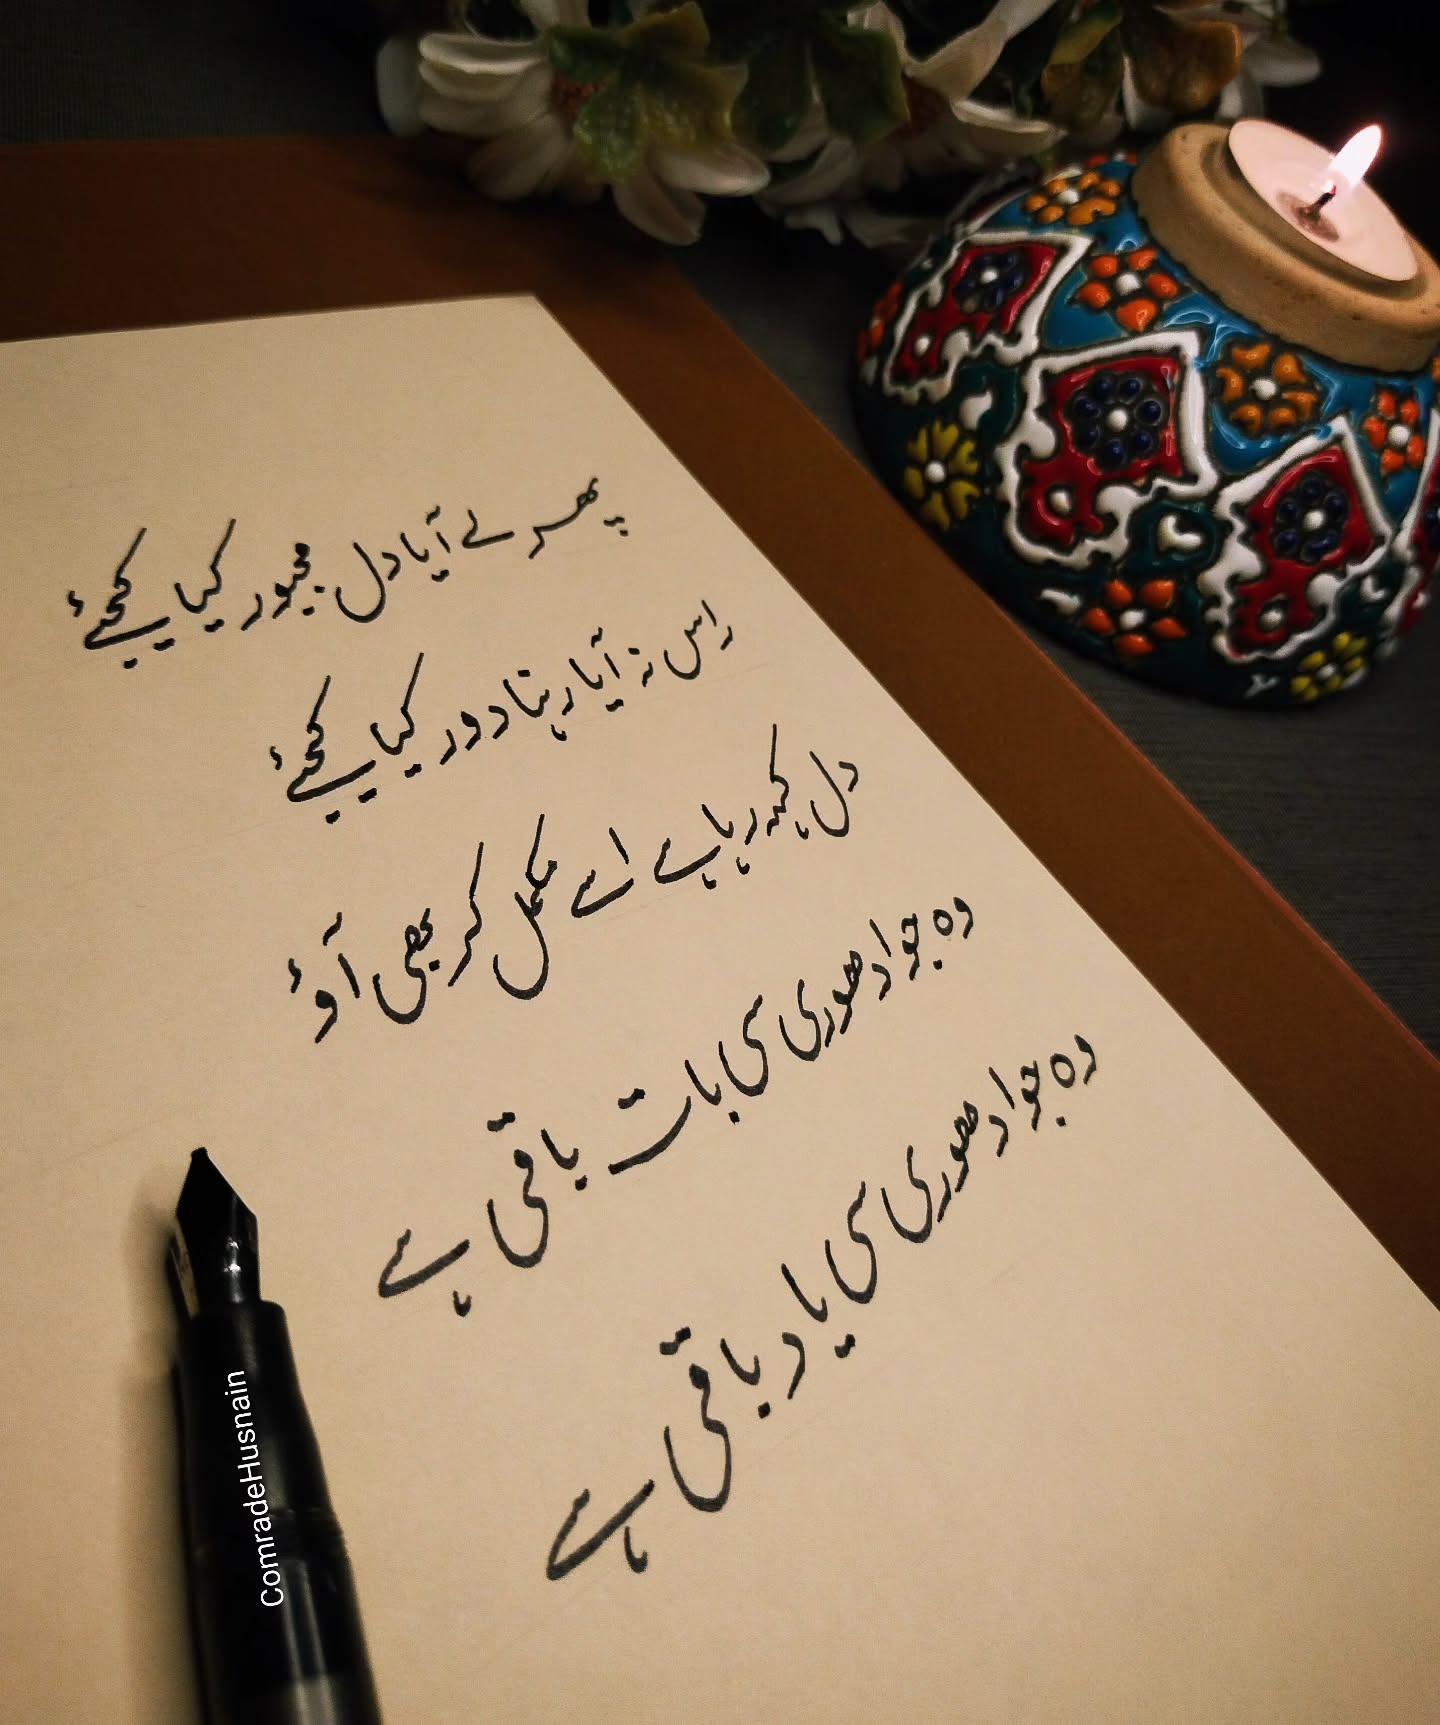 پھر لے آیا دل مجبور کیا کیجئے
راس نہ آیا رہنا دور کیا کیجئے
دل کہہ رہا ہے اسے مکمل کر بھی آؤ
وہ جو ادھوری سی بات باقی ہے
وہ جو ادھوری سی یاد باقی ہے
ComradeHusnain